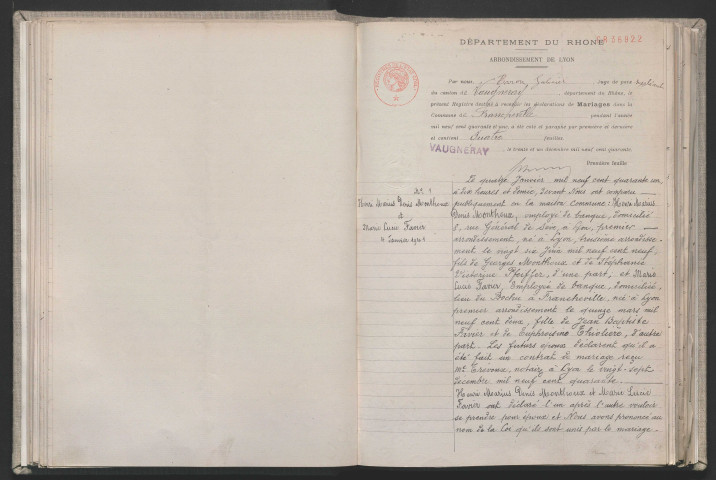 DÉPARTEMENT DU RHONE
ARRONDISSEMENT DE LYON
Par nous, juge de paix
du canton de Vaugneray département du Rhône, le
présent Registre destiné à recevoir les déclarations de Mariages dans la
Commune de Francheville pendant l'année
mil neuf cent quarante et un, a été coté et paraphé par première et dernière
et contient feuilles.
VAUGNERAY le trente et un décembre mil neuf cent quarante.
Première feuille
N° 1
Henri Marius Denis Monthoux
&
Marie Lucie Favier
Janvier 1941
Le quinze Janvier mil neuf cent quarante un,
à dix heures et demie, devant Nous ont comparu
publiquement en la maison commune: Henri Marius
Denis Monthoux, employé de banque, domicilié
8, rue Général de à Lyon, premier
arrondissement, né à Lyon, troisième arrondisse-
ment le vingt six Juin mil neuf cent neuf,
fils de Georges Monthoux et de Stéphanie
Victorine Pfeiffer, d'une part, et Marie
Lucie Favier, Employée de banque, domiciliée,
lieu de à Francheville, née à Lyon
premier arrondissement le quinze mars mil
neuf cent deux, fille de Jean Baptiste
Favier et de Euphrosine d'autre
part. Les futurs époux déclarent qu'il a
été fait un contrat de mariage reçu
Me notaire à Lyon le vingt-sept
décembre mil neuf cent quarante.
Henri Marius Denis Monthoux et Marie Lucie
Favier ont déclaré l'un après l'autre vouloir
se prendre pour époux et Nous avons prononcé au
nom de la Loi qu'ils sont unis par le mariage.